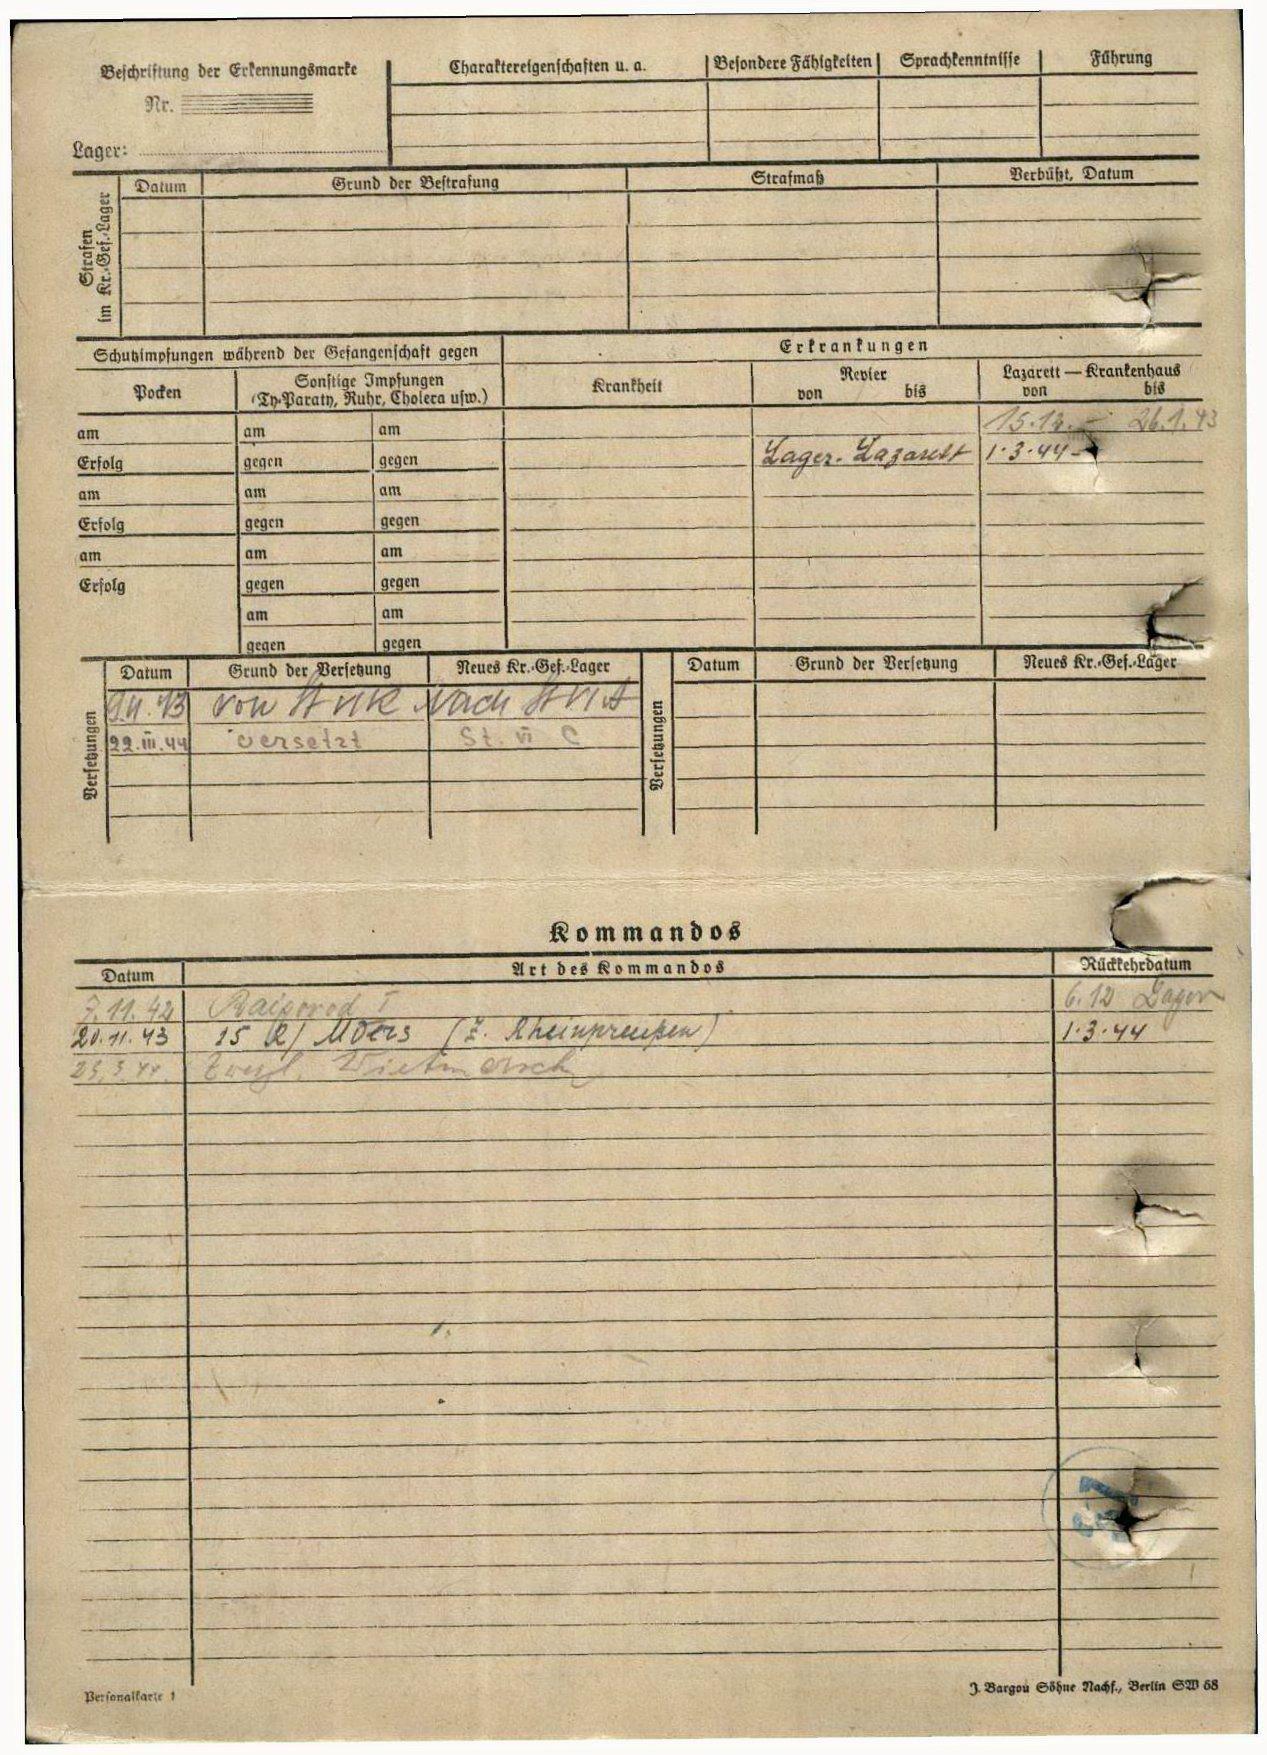 Beschriftung der Erkennungsmarke
Nr.
Lager:
Charaktereigenschaften u. a. Besondere Fähigkeiten Sprachkenntnisse Führung
Strafen im Kr.-Gef.-Lager
Datum Grund der Bestrafung Strafmaß Verbüßt, Datum
Schutzimpfungen während der Gefangenschaft gegen Erkrankungen
Pocken Sonstige Impfungen (Ty-Paraty, Ruhr, Cholera usw.) Krankheit Revier von bis Lazarett — Krankenhaus von bis
am am am 15.12. - 26.1.43
Erfolg gegen gegen Lager-Lazarett 1.3.44 -
am am am
Erfolg gegen gegen
am am am
Erfolg gegen gegen
am am
gegen gegen
Versetzungen
Datum Grund der Versetzung Neues Kr.-Gef.-Lager
von nach
22.III.44 versetzt St. VI C
Versetzungen
Datum Grund der Versetzung Neues Kr.-Gef.-Lager
Kommandos
Datum Art des Kommandos Rückkehrdatum
7.11.42 I 6.12 Lager
20.11.43 15 Moers (Z. Rheinpreußen) 1.3.44
Personalkarte 1
J. Bargou Söhne Nachf., Berlin SW 68